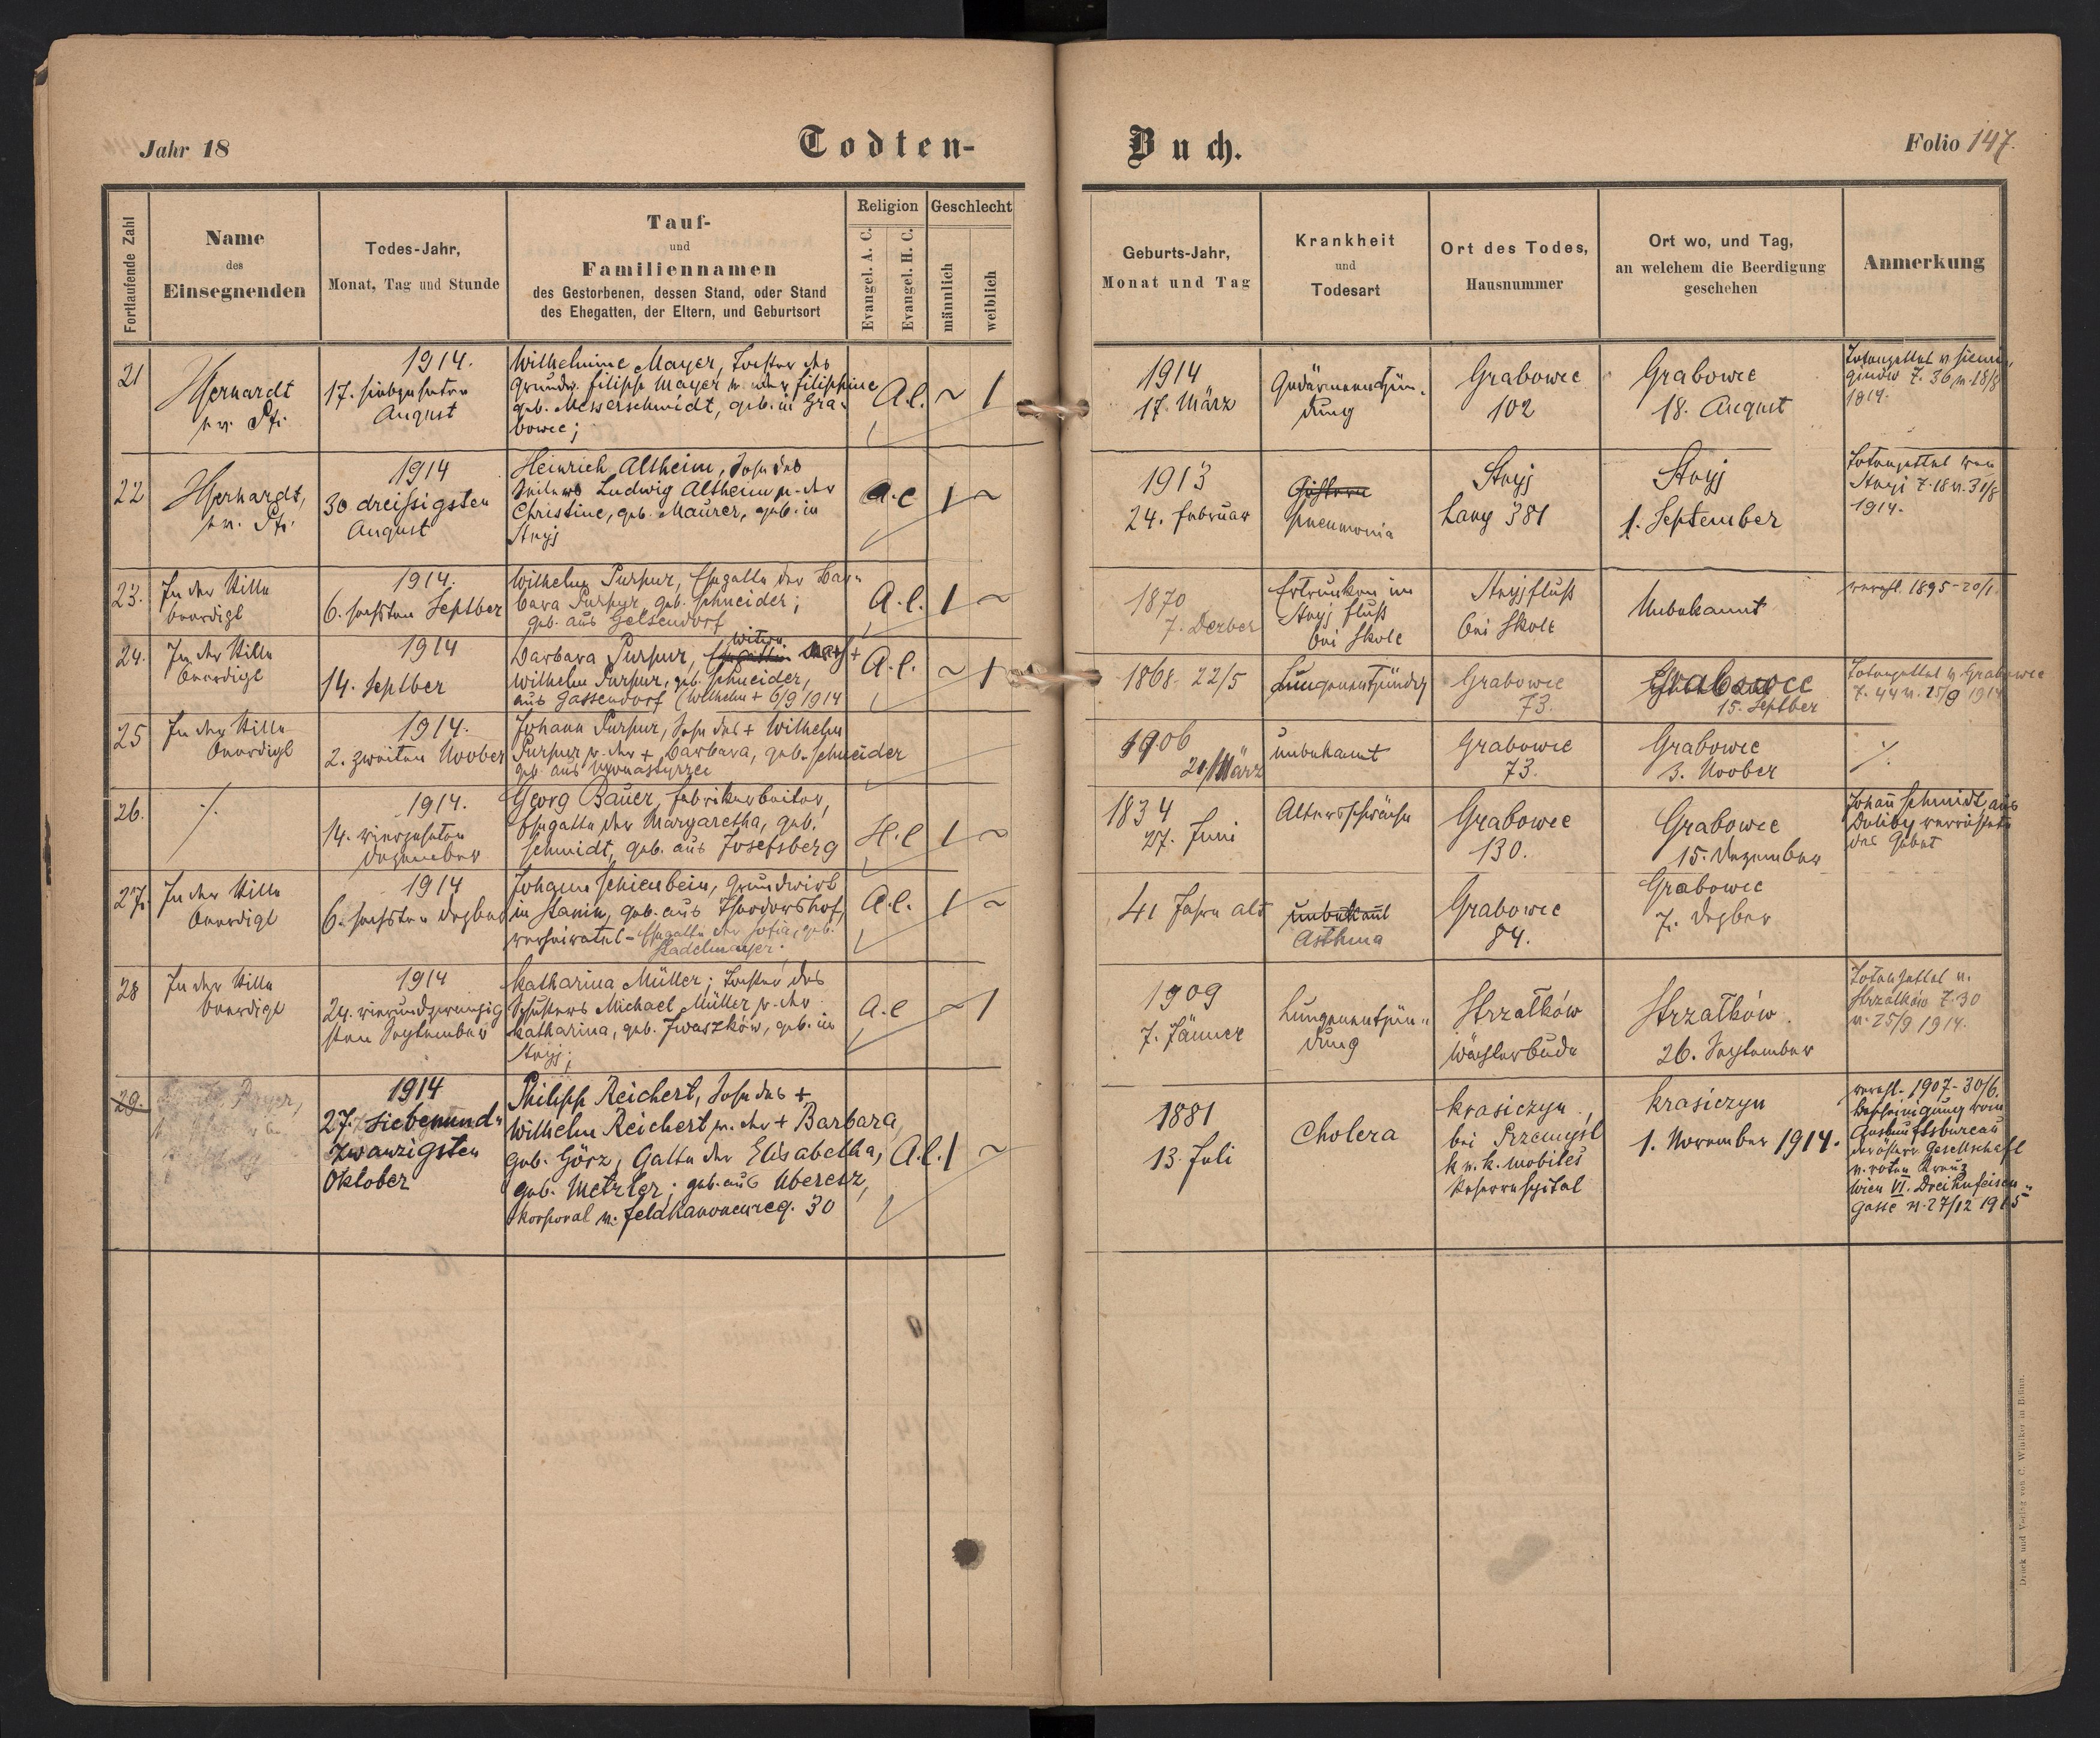 Jahr 18
Todten-
Buch.
Folio 147.
Fortlaufende Zahl
Name
des
Einsegnenden
Todes-Jahr,
Monat, Tag und Stunde
Tauf-
und
Familiennamen
des Gestorbenen, dessen Stand, oder Stand
des Ehegatten, der Eltern, und Geburtsort
Religion
Evangel. A. C.
Evangel. H. C.
Geschlecht
männlich
weiblich
Geburts-Jahr,
Monat und Tag
Krankheit
und
Todesart
Ort des Todes,
Hausnummer
Ort wo, und Tag,
an welchem die Beerdigung
geschehen
Anmerkung
21
1914.
17. siebzehnten
August
Wilhelmine Mayer, Tochter des
Grundw. Filipp Mayer u. der Filippine
geb. Messerschmidt, geb. in Gra-
bowce;
A.C. ~ 1
1914
17. März
Gedärmentzün-
dung
Grabowce
102
Grabowce
18. August
Totenzettel v.
Z. 36, v. 18/8
1914.
22
1914
30 dreißigsten
August
Heinrich Altheim, Sohn des
Ludwig Altheim u. der
Christine, geb. Maurer, geb. in
Stryj
A.C 1 ~
1913
24. Februar
Pneumonia
Stryj
Lany 381
Stryj
1. September
Totenzettel von
Stryj Z. 18 v. 31/8
1914.
23.
In der Stille
beerdigt
1914.
6. sechsten Septber
Wilhelm Purpur, Ehegatte der Bar-
bara Purpur, geb. Schneider;
geb. aus Gelsendorf
A.C. 1 ~
1870
7. Dezber
Ertrunken im
Stryj Fluß
bei Skole
Stryjfluß
bei Skole
Unbekannt
verehl. 1895-20/1.
24.
In der Stille
beerdigt
1914
14. Septber
Witwe
Barbara Purpur, Ehegattin nach +
Wilhelm Purpur, geb. Schneider,
aus Gassendorf (Wilhelm + 6/9 1914
A.C. ~ 1
1868- 22/5
Lungenentzündg
Grabowce
73.
Grabowce
15. Septber
Totenzettel v. Grabowce
Z. 44 v. 15/9 1914
25
In der Stille
beerdigt
1914.
2. zweiten Novber
Johann Purpur, Sohn des + Wilhelm
Purpur u. der + Barbara, geb. Schneider
geb. aus
1906
21/März
unbekannt
Grabowce
73.
Grabowce
3. Novber
./.
26.
./.
1914.
14. vierzehnten
Dezember
Georg Bauer, Fabrikarbeiter,
Ehegatte der Margaretha, geb.
Schmidt, geb. aus Josefsberg
H.C 1 ~
1834
27. Juni
Altersschwäche
Grabowce
130.
Grabowce
15. Dezember
Johann Schmidt aus
Doliby verrichtete
das Gebet
27.
In der Stille
beerdigt
1914
6. sechsten Dezber
Johann Schienbein, Grundwirt
in Stanin, geb. aus Theodorshof,
verheiratet - Ehegatte der Sofia, geb.
Stadelmayer.
A.C. 1 ~
41 Jahre alt
unbekannt
Asthma
Grabowce
84.
Grabowce
7. Dezber
28
In der Stille
beerdigt
1914
24. vierundzwanzig
sten September
Katharina Müller; Tochter des
Schusters Michael Müller u. der
Katharina, geb. Iwaszków, geb. in
Stryj;
A.C ~ 1
1909
7. Jänner
Lungenentzün-
dung
Strzałków
Wächterbude
Strzałków
26. September
Totenzettel v.
Strzałków Z. 30
v. 25/9 1914.
29.
1914
27. siebenund-
zwanzigsten
Oktober
Philipp Reichert, Sohn des +
Wilhelm Reichert u. der + Barbara,
geb. Görz, Gatte der Elisabetha,
geb. Metzler; geb. aus Ugersz,
Korporal v. Feldkanonenreg. 30
A.C. 1 ~
1881
13. Juli
Cholera
Krasiczyn,
bei Przemyśl
k. u. k. mobiles
Reservespital
Krasiczyn
1. November 1914.
verehl. 1907-30/6.
Bescheinigung vom
Auskunftsbureau
der österr. Gesellschaft
v. roten Kreuz
Wien VI. Dreihufeisen-
gasse v. 27/12 1915
Druck und Verlag von C. Winiker in Brünn.